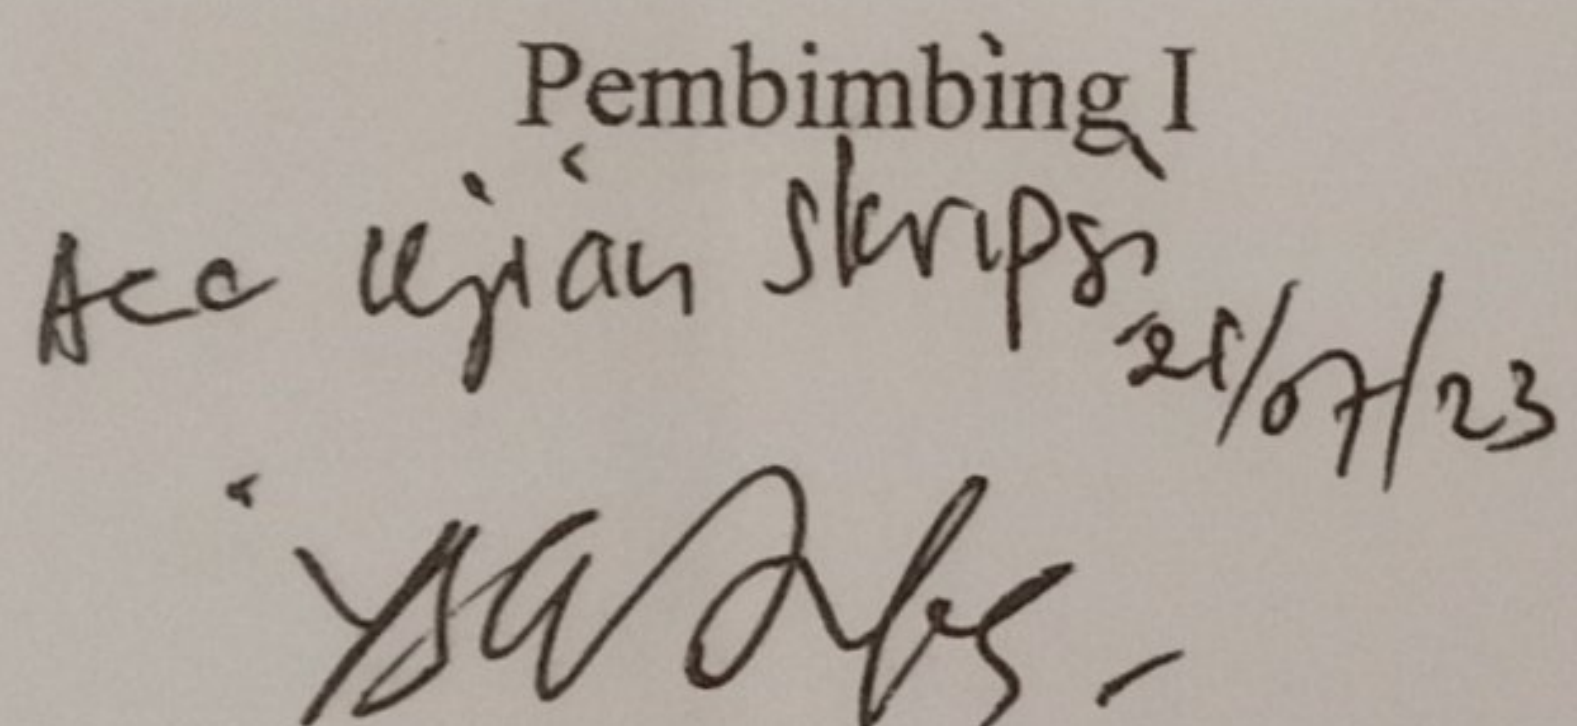 Pembimbing I
Acc Ujian Skripsi
21/07/23